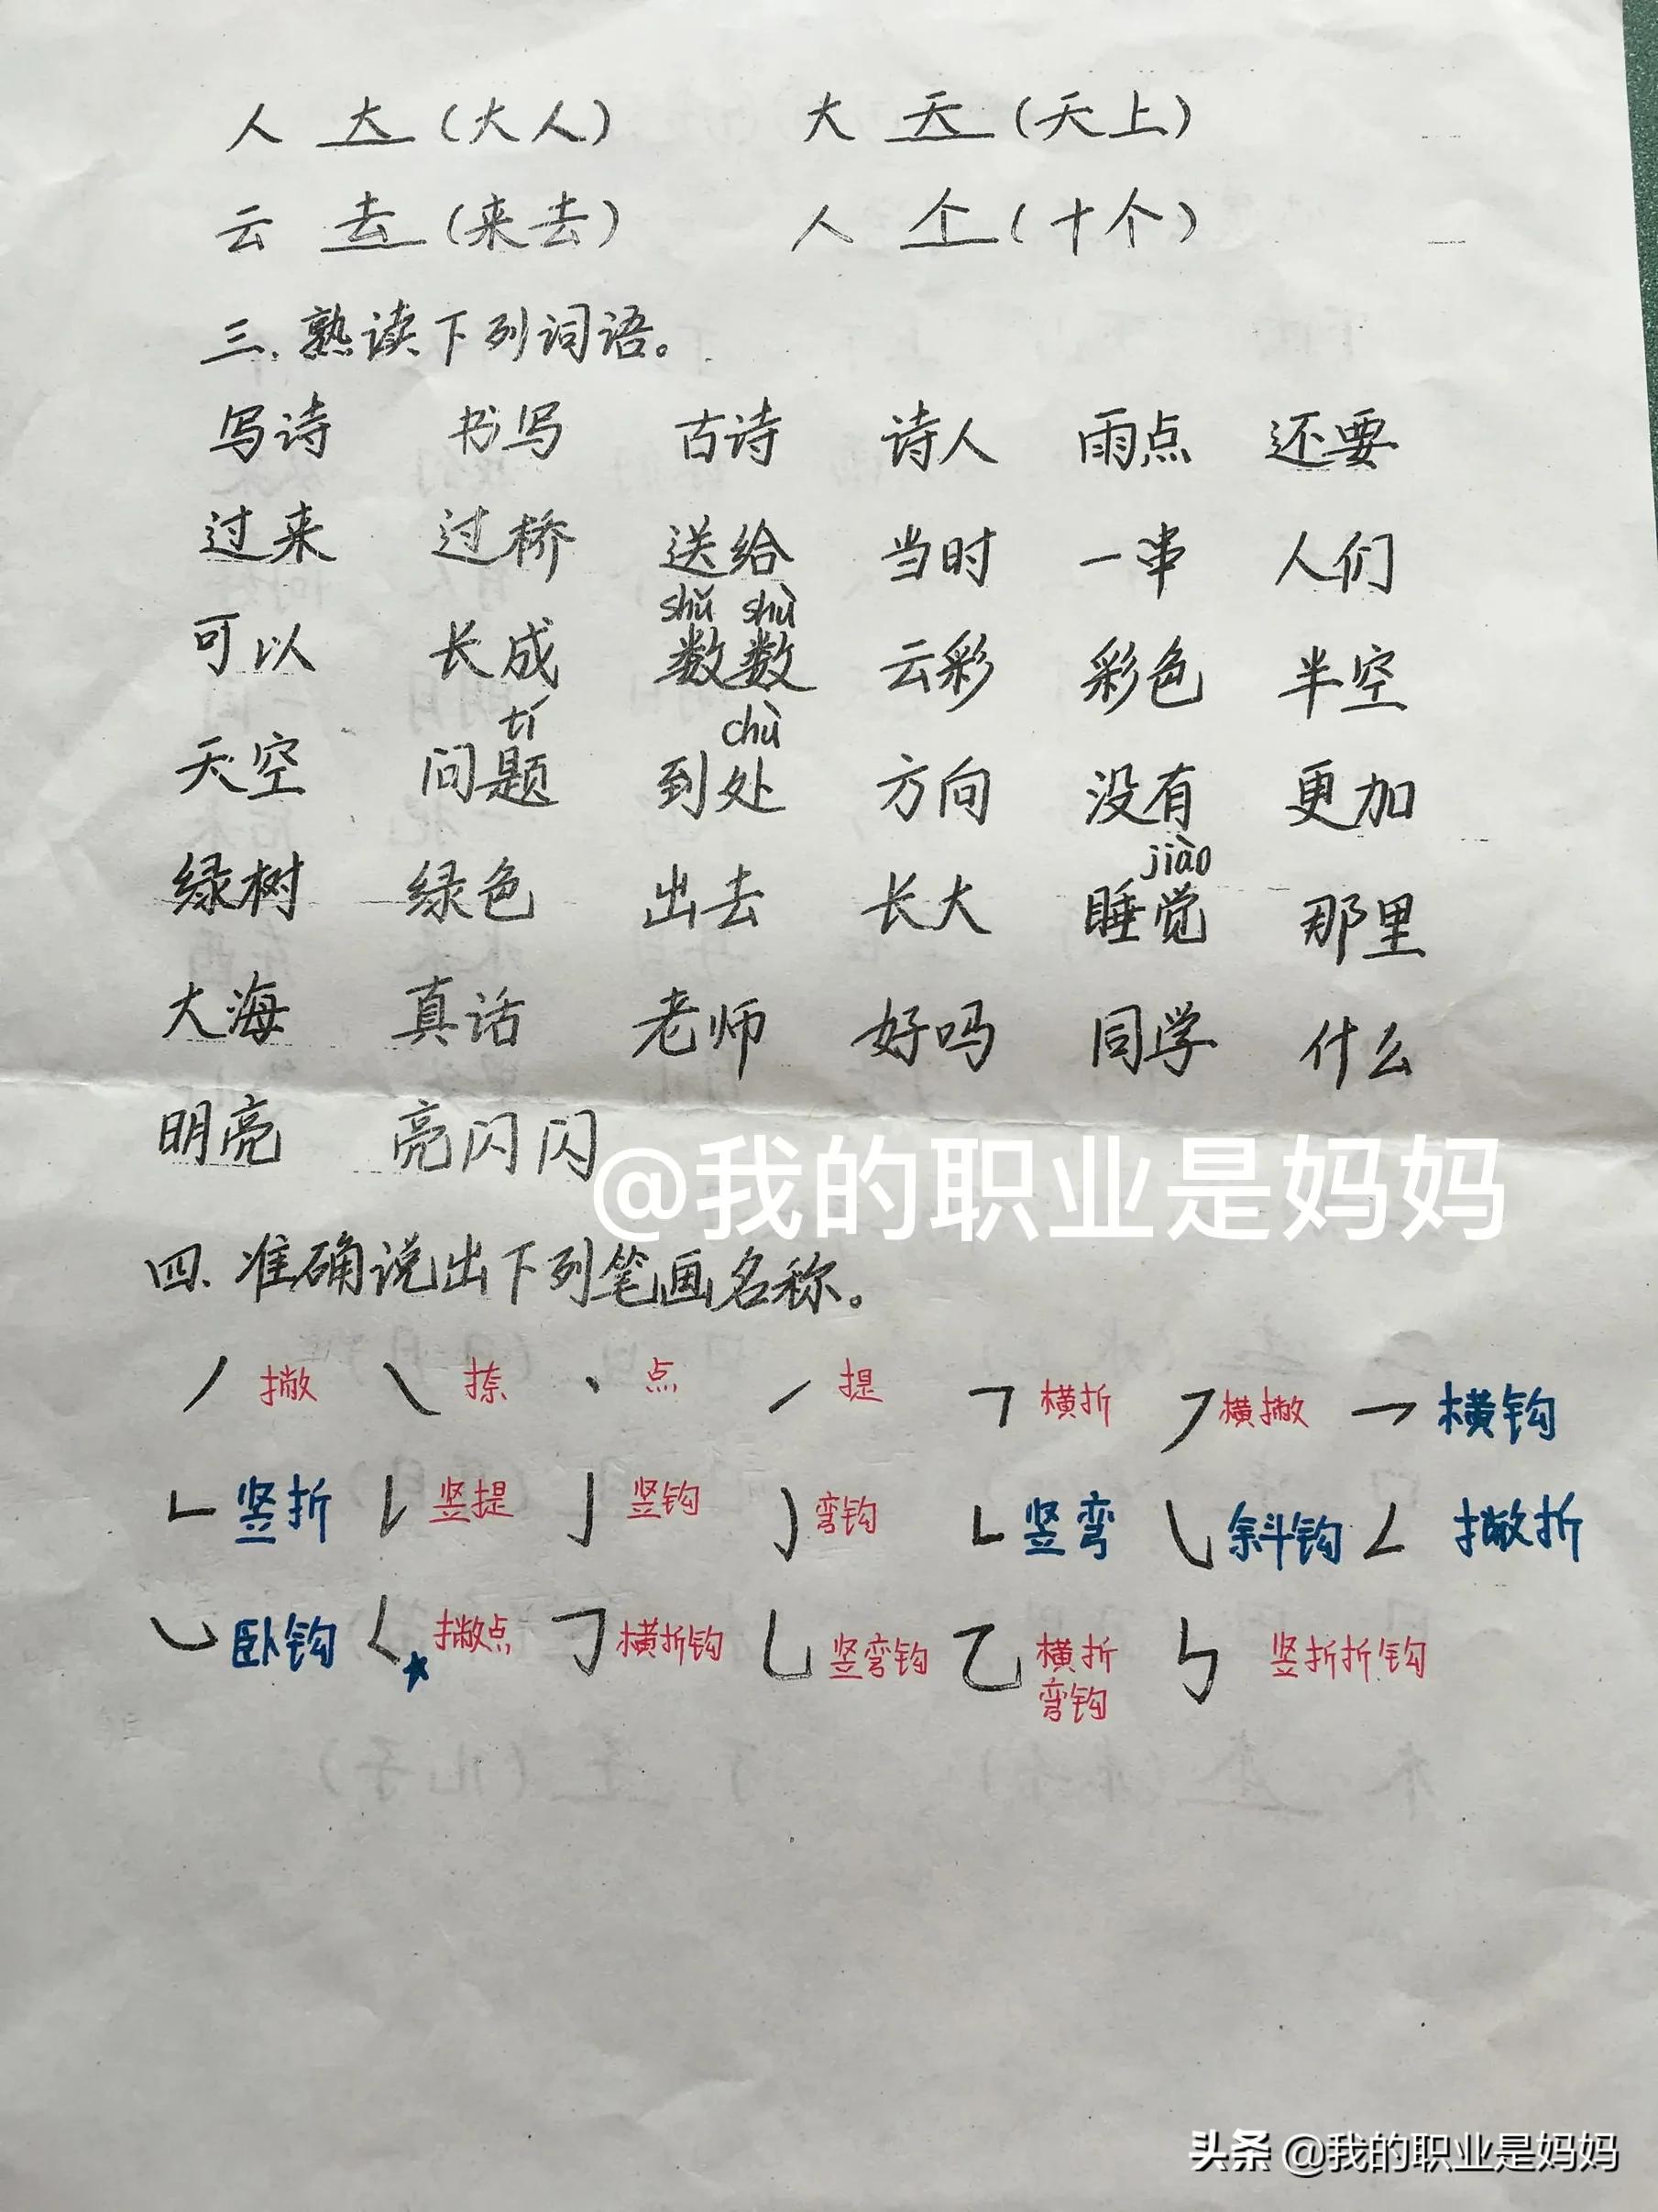 人 大 (大人) 大 天 (天上)
云 去 (来去) 人 个 (十个)
三、熟读下列词语。
写诗 书写 古诗 诗人 雨点 还要
过来 过桥 送给 当时 一串 人们
shǔ shù
可以 长成 数数 云彩 彩色 半空
tí chù
天空 问题 到处 方向 没有 更加
jiào
绿树 绿色 出去 长大 睡觉 那里
大海 真话 老师 好吗 同学 什么
明亮 亮闪闪
@我的职业是妈妈
四、准确说出下列笔画名称。
㇒ 撇 ㇏ 捺 ㇔ 点 ㇀ 提 ㇕ 横折 ㇇ 横撇 ㇖ 横钩
㇗ 竖折 ㇙ 竖提 ㇚ 竖钩 ㇁ 弯钩 ㇄ 竖弯 ㇂ 斜钩 ㇜ 撇折
㇃ 卧钩 ㇛ 撇点 ㇆ 横折钩 ㇟ 竖弯钩 ㇈ 横折弯钩 ㇉ 竖折折钩
头条 @我的职业是妈妈